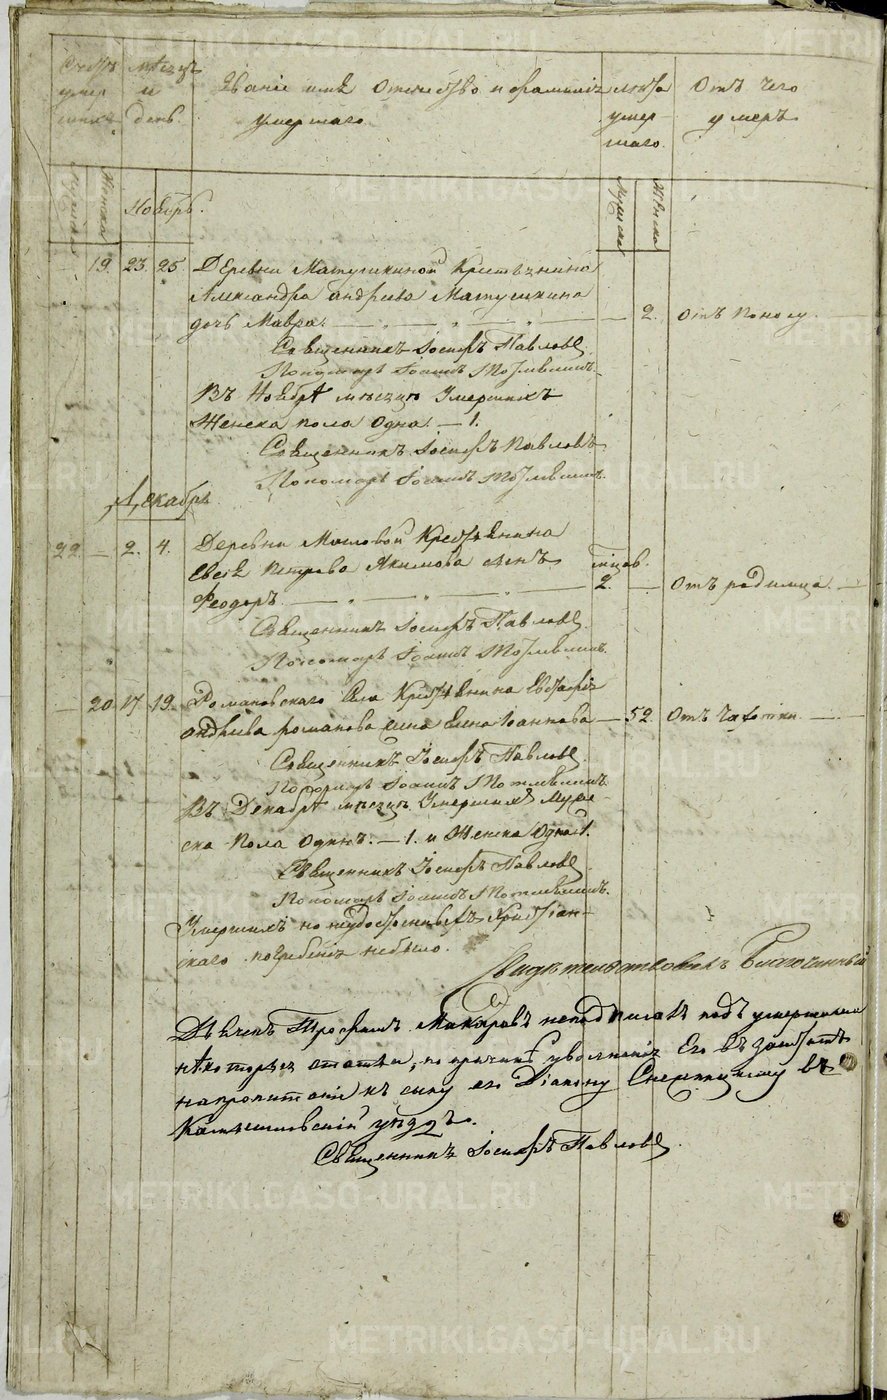 Счетъ умер шихъ
Мѣсяцъ и день
Званіе имѣ Отечество и фамиліѣ умершаго
лѣта умер- шаго
Отъ чего умеръ
Мужска
Женска
Ноябрь.
Мужска
Женска
19. 23. 25 Деревни Матушкиной Крестьянина
Александра андреева Матушкина
дочь Мавра. — 2. Отъ поносу
Священникъ Іосифъ Павловъ
Пономарь Іоаннъ
Въ Ноябрѣ мѣсяцѣ Умершихъ
Женска пола Одна. — 1.
Священникъ Іосифъ Павловъ
Пономарь Іоаннъ
Декабрь
22 — 2. 4. Деревни Масловой Крестьянина
Евсѣя Петрова Якимова сынъ
Феодоръ. — 2. — Отъ родимца. —
Священникъ Іосифъ Павловъ
Пономарь Іоаннъ
— 20 17. 19. Романовскаго Села Крестьянина Евстафія
андреева романова жена Елена Іоаннова — 52 Отъ Чахотки. —
Священникъ Іосифъ Павловъ
Пономарь Іоаннъ
Въ Декабрѣ мѣсяцѣ Умершихъ Муже-
ска пола Одинъ. — 1. и Женска Одна 1.
Священникъ Іосифъ Павловъ
Пономарь Іоаннъ
Умершихъ но неудостоенныхъ Христіан-
скаго погребенія небыло.
Свидѣтельствовалъ Благочинный
Дьячекъ Трофимъ Макаровъ неподписалъ подъ умершими
нѣкоторыя статьи, по причинѣ уволненія Его въ заштатъ
на пропитаніе къ сыну его Діакону въ
Камышловскій уѣздъ.
Священникъ Іосифъ Павловъ
METRIKI.GASO-URAL.RU